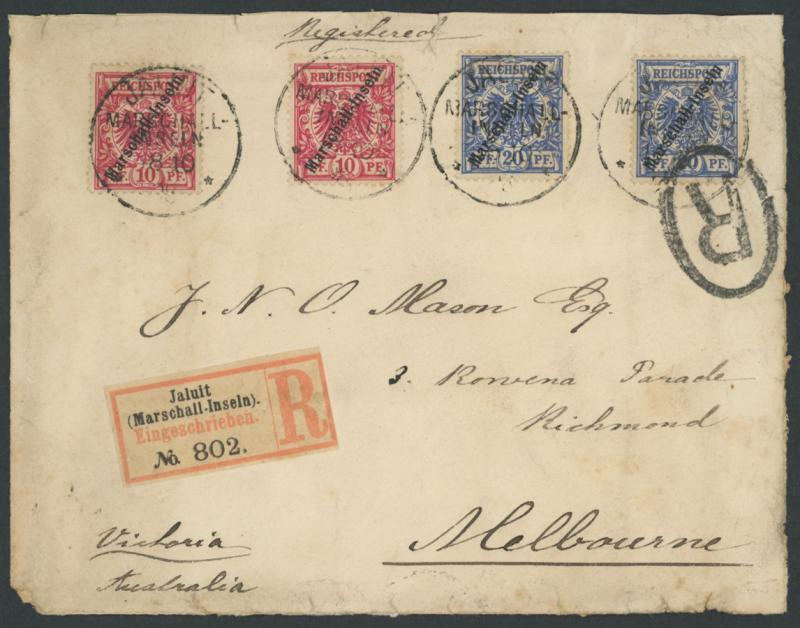 Registered
REICHSPOST Marschall-Inseln 10 PF.
REICHSPOST Marschall-Inseln PF. 10 PF.
REICHSPOST Marschall-Inseln PF. 20 PF.
REICHSPOST Marschall-Inseln PF. 20 PF.
JALUIT
MARSCHALL-
INSELN
R
J. N. O. Mason Esq.
3. Rowena Parade
Richmond
Jaluit
(Marschall-Inseln).
Eingeschrieben.
No. 802.
R
Victoria
Melbourne
Australia